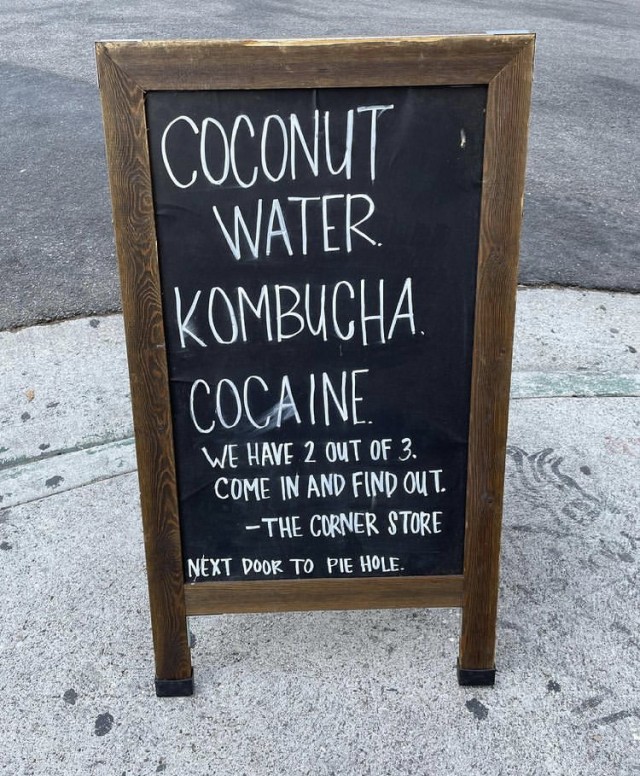 COCONUT
WATER.
KOMBUCHA.
COCAINE.
WE HAVE 2 OUT OF 3.
COME IN AND FIND OUT.
-THE CORNER STORE
NEXT DOOR TO PIE HOLE.